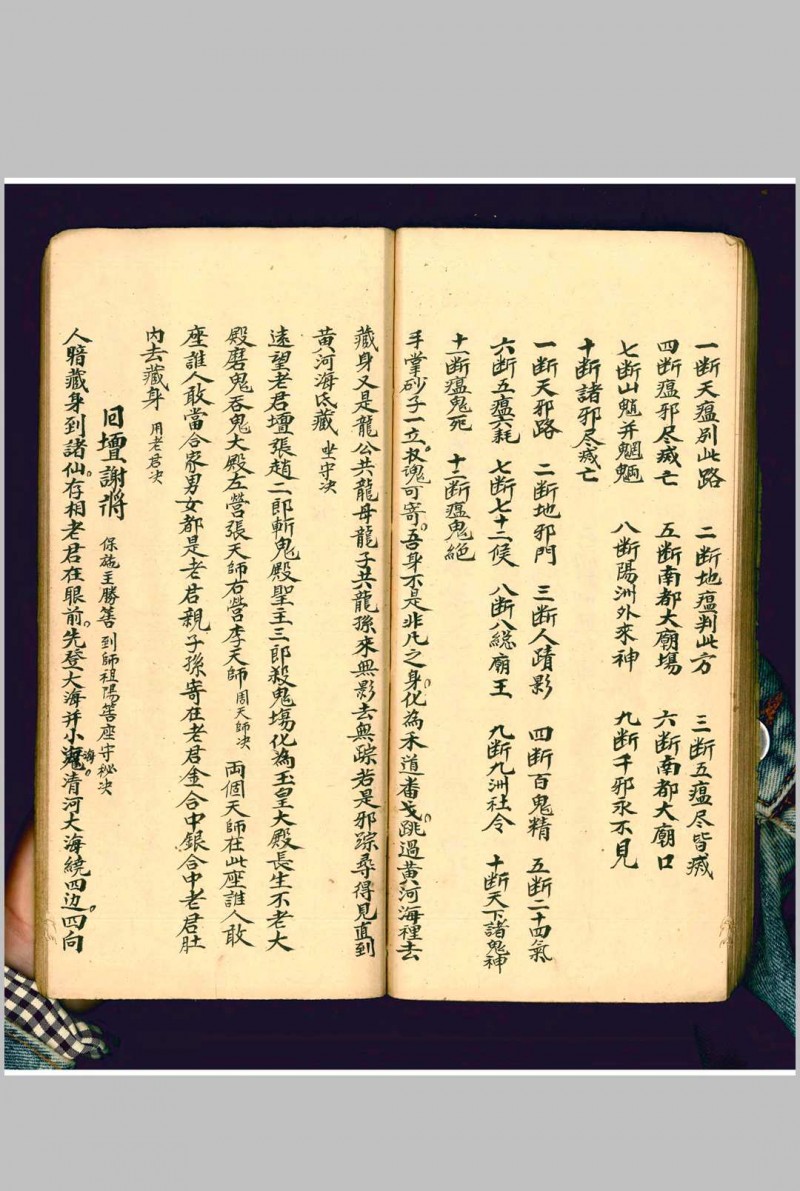 一断天瘟别此路 二断地瘟判此方 三断五瘟尽皆滅
四断瘟邪尽滅亡 五断南都大廟塲 六断南都大廟口
七断山魈并魍魎 八断陽洲外來神 九断千邪永不見
十断諸邪尽滅亡
一断天邪路 二断地邪門 三断人蹟影 四断百鬼精 五断二十四氣
六断五瘟六耗 七断七十二候 八断八総廟王 九断九洲社令 十断天下諸鬼神
十一断瘟鬼死 十二断瘟鬼絶
手掌砂子一立。权魂可寄。吾身不是非凡之身。化為禾道畨戈。跳過黄河海裡去
藏身又是龍公共龍母龍子共龍孫來無影去無踪若是邪踪尋得見直到
黄河海底藏 坐守决
遠望老君壇張趙二郎斬鬼殿聖主三郎殺鬼塲化為玉皇大殿長生不老大
殿磨鬼吞鬼大殿左營張天師右營李天師 周天師决 両個天師在此座誰人敢
座誰人敢當合家男女都是老君親子孫寄在老君金合中銀合中老君肚
内去藏身 用老君决
囘壇謝将 保施主勝筶 到師祖陽筶座守秘决
人暗藏身到諸仙。存相老君在眼前。先登大海并小海。清河大海繞四边。四向